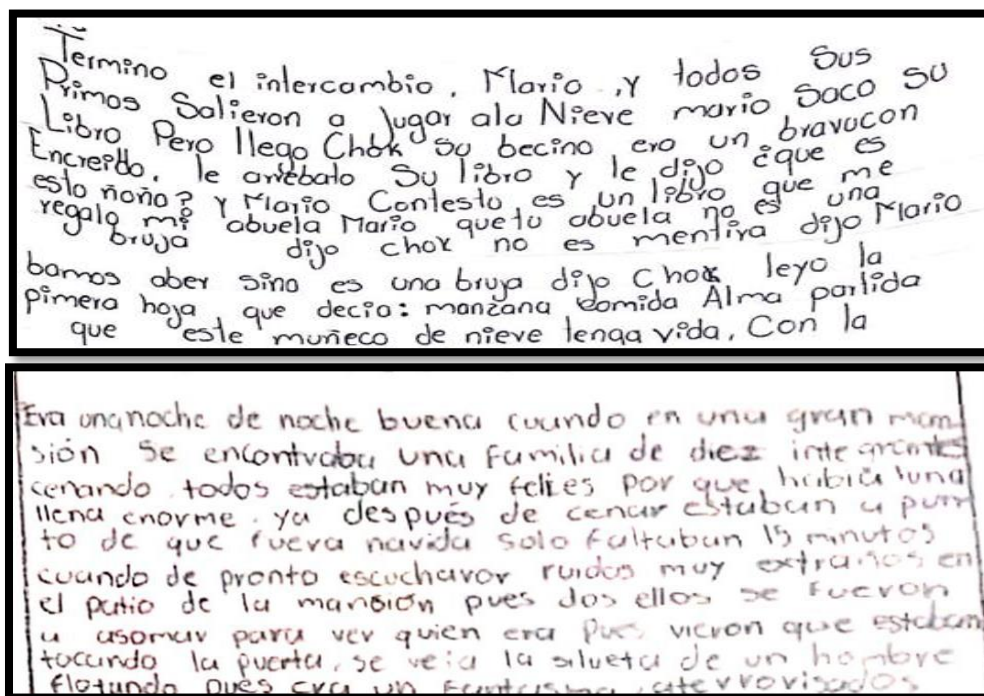 Termino el intercambio, Mario, y todos sus
Primos Salieron a Jugar ala Nieve mario Saco su
Libro Pero llego Chok su becino ero un bravucon
Encreido, le arrebato Su libro y le dijo ¿que es
esto ñoño? Y Mario Contesto es un libro que me
regalo mi abuela Mario quetu abuela no es una
bruja dijo chok no es mentira dijo Mario
bamos aber sino es una bruja dijo Chok leyo la
pimera hoja que decia: manzana comida Alma partida
que este muñeco de nieve tenga vida, Con la
Era una noche de noche buena cuando en una gran man
sión se encontraba una familia de diez integrantes
cenando todos estaban muy felices por que había luna
llena enorme. ya después de cenar estaban a pun
to de que fuera navida solo faltaban 15 minutos
cuando de pronto escucharor ruidos muy extraños en
el patio de la mansión pues dos ellos se fueron
a asomar para ver quien era pues vieron que estaban
tocando la puerta, se veia la silueta de un hombre
flotando pues era un fantasma, aterrorisados